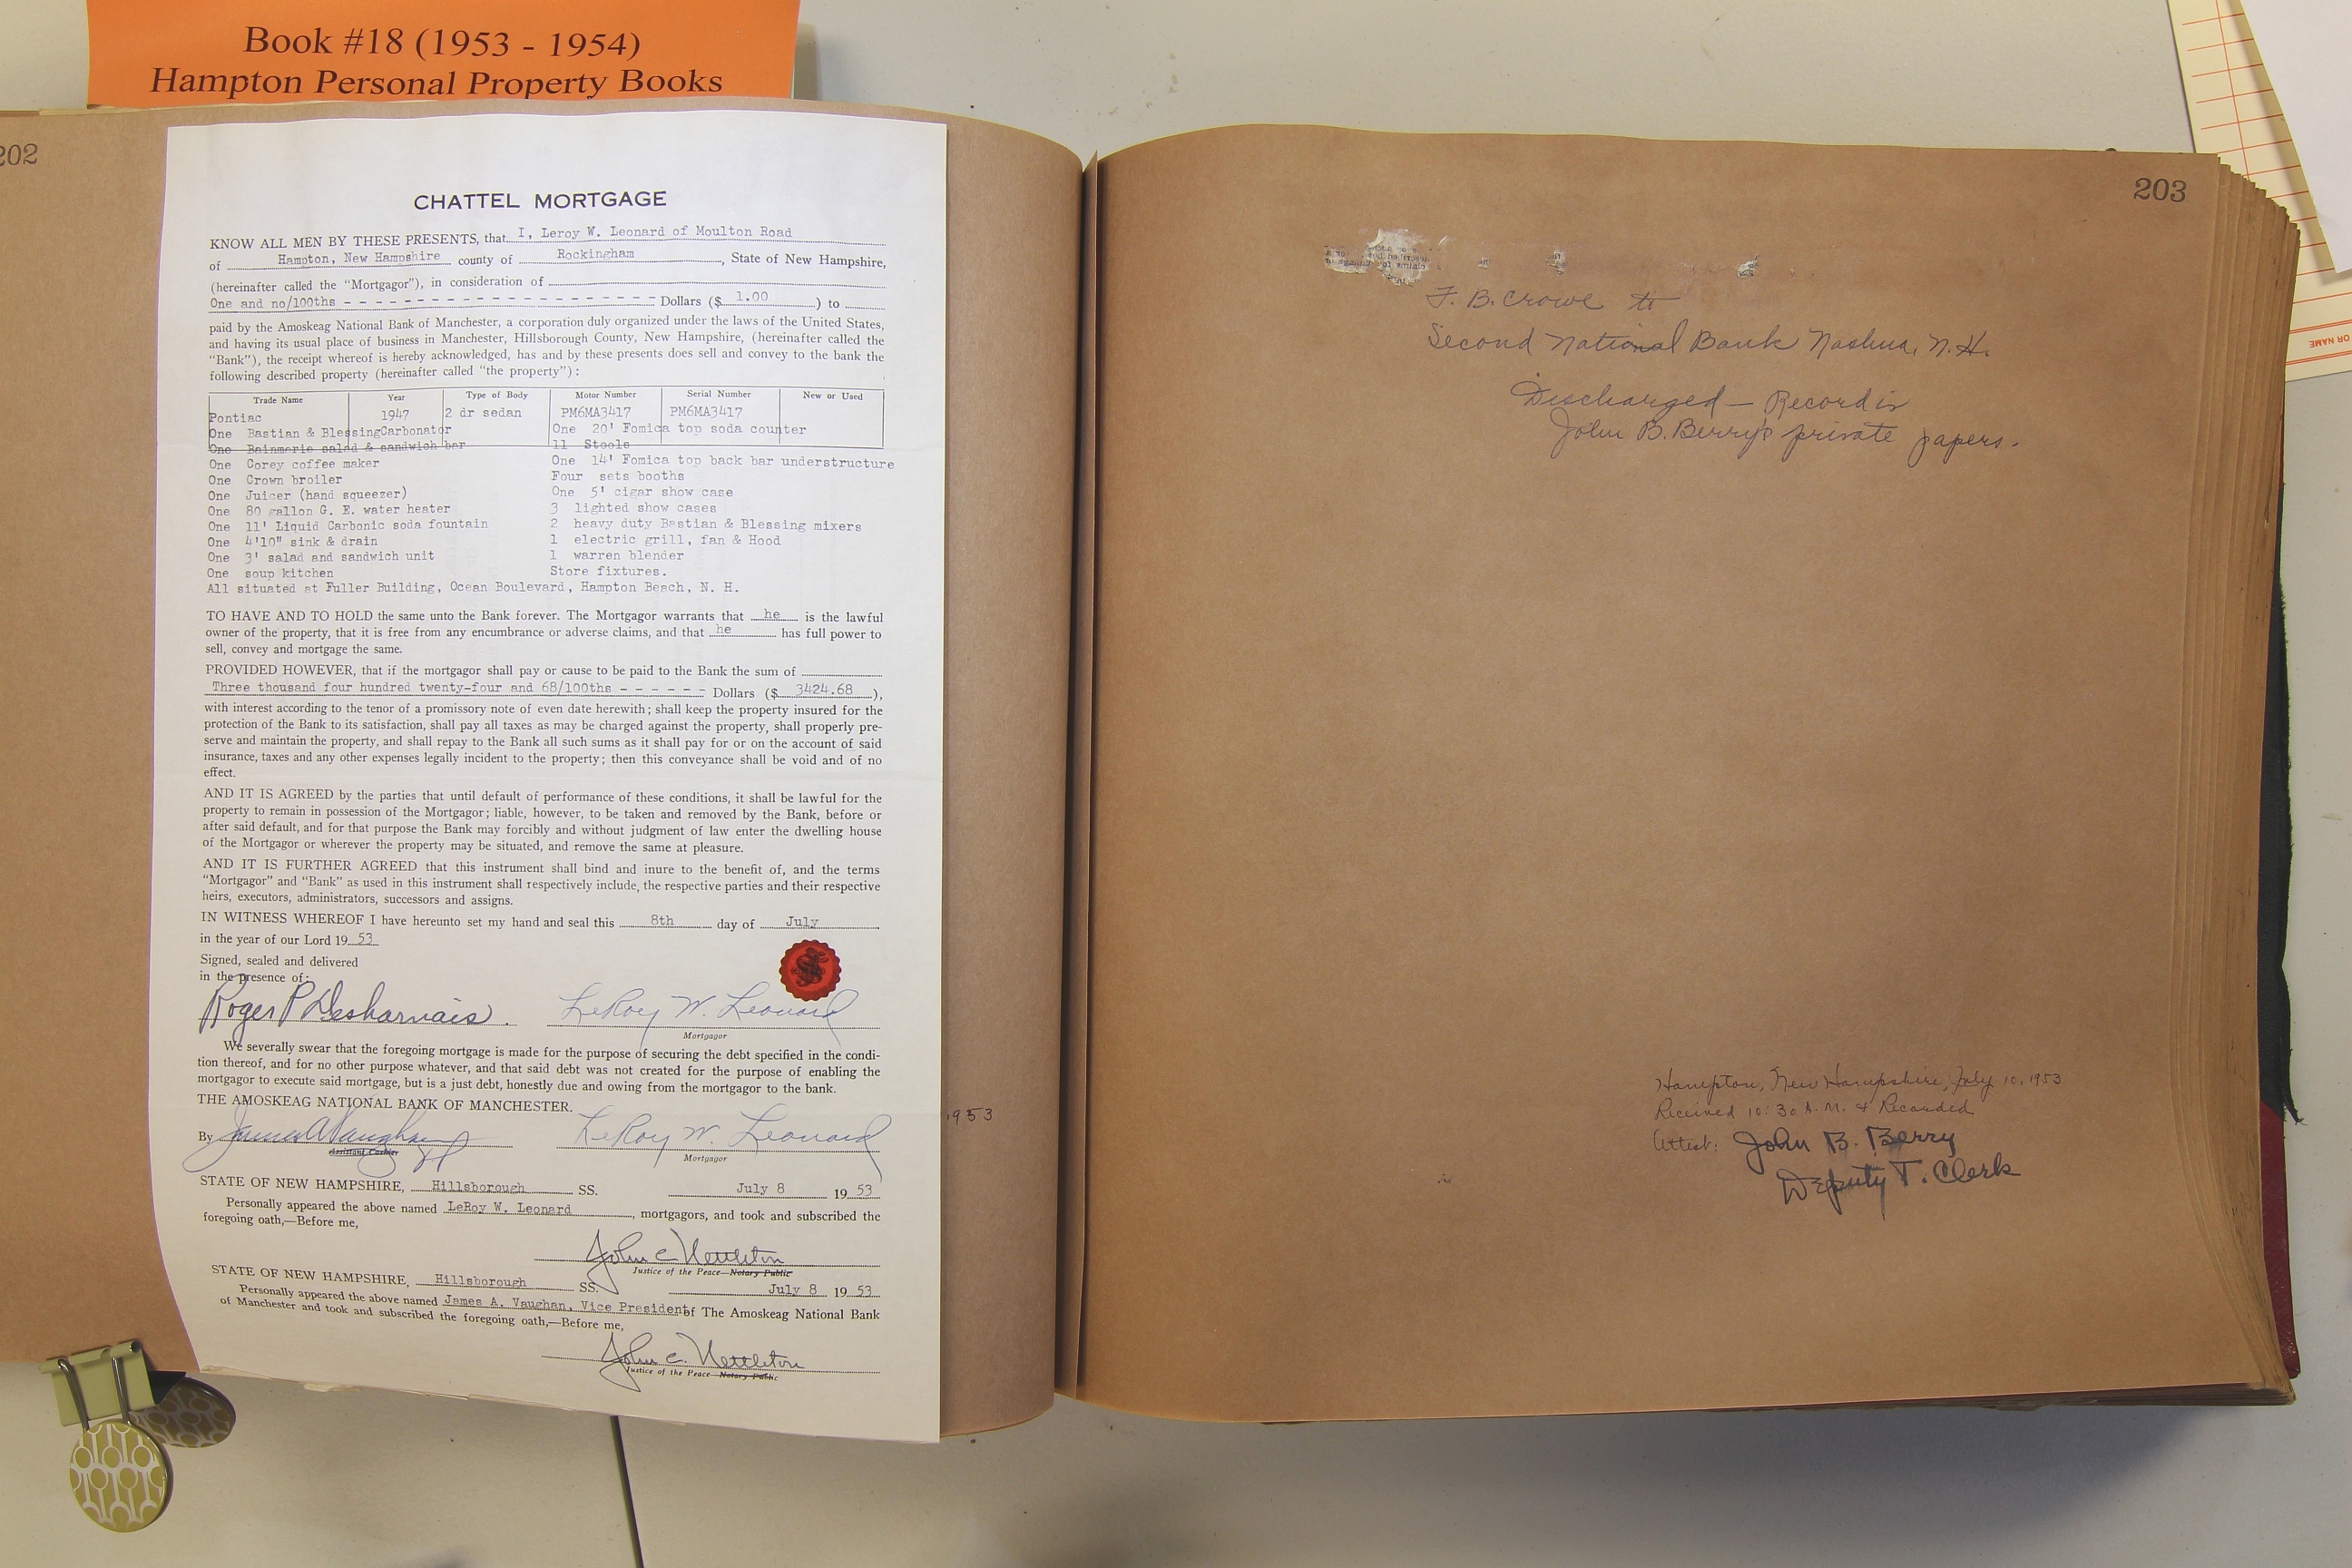 Book #18 (1953 - 1954)
Hampton Personal Property Books
202
CHATTEL MORTGAGE
KNOW ALL MEN BY THESE PRESENTS, that I, Leroy W. Leonard of Moulton Road
of Hampton, New Hampshire county of Rockingham, State of New Hampshire,
(hereinafter called the "Mortgagor"), in consideration of
One and no/100ths - - - - - - - - - - - - - - - - - - - - Dollars ($ 1.00 ) to
paid by the Amoskeag National Bank of Manchester, a corporation duly organized under the laws of the United States,
and having its usual place of business in Manchester, Hillsborough County, New Hampshire, (hereinafter called the
"Bank"), the receipt whereof is hereby acknowledged, has and by these presents does sell and convey to the bank the
following described property (hereinafter called "the property"):
Trade Name Year Type of Body Motor Number Serial Number New or Used
Pontiac 1947 2 dr sedan PM6MA3417 PM6MA3417
One Bastian & BlessingCarbonator One 20' Fomica top soda counter
One Bainmerie salad & sandwich bar 11 Stools
One Corey coffee maker One 14' Fomica top back bar understructure
One Crown broiler Four sets booths
One Juicer (hand squeezer) One 5' cigar show case
One 80 gallon G. E. water heater 3 lighted show cases
One 11' Liquid Carbonic soda fountain 2 heavy duty Bastian & Blessing mixers
One 4'10" sink & drain 1 electric grill, fan & Hood
One 3' salad and sandwich unit 1 warren blender
One soup kitchen Store fixtures.
All situated at Fuller Building, Ocean Boulevard, Hampton Beach, N. H.
TO HAVE AND TO HOLD the same unto the Bank forever. The Mortgagor warrants that he is the lawful
owner of the property, that it is free from any encumbrance or adverse claims, and that he has full power to
sell, convey and mortgage the same.
PROVIDED HOWEVER, that if the mortgagor shall pay or cause to be paid to the Bank the sum of
Three thousand four hundred twenty-four and 68/100ths - - - - - - Dollars ($ 3424.68 ),
with interest according to the tenor of a promissory note of even date herewith; shall keep the property insured for the
protection of the Bank to its satisfaction, shall pay all taxes as may be charged against the property, shall properly pre-
serve and maintain the property, and shall repay to the Bank all such sums as it shall pay for or on the account of said
insurance, taxes and any other expenses legally incident to the property; then this conveyance shall be void and of no
effect.
AND IT IS AGREED by the parties that until default of performance of these conditions, it shall be lawful for the
property to remain in possession of the Mortgagor; liable, however, to be taken and removed by the Bank, before or
after said default, and for that purpose the Bank may forcibly and without judgment of law enter the dwelling house
of the Mortgagor or wherever the property may be situated, and remove the same at pleasure.
AND IT IS FURTHER AGREED that this instrument shall bind and inure to the benefit of, and the terms
"Mortgagor" and "Bank" as used in this instrument shall respectively include, the respective parties and their respective
heirs, executors, administrators, successors and assigns.
IN WITNESS WHEREOF I have hereunto set my hand and seal this 8th day of July
in the year of our Lord 19 53
Signed, sealed and delivered
in the presence of:
Roger P Desharnais. LeRoy W. Leonard
Mortgagor
We severally swear that the foregoing mortgage is made for the purpose of securing the debt specified in the condi-
tion thereof, and for no other purpose whatever, and that said debt was not created for the purpose of enabling the
mortgagor to execute said mortgage, but is a just debt, honestly due and owing from the mortgagor to the bank.
THE AMOSKEAG NATIONAL BANK OF MANCHESTER.
By James A Vaughan LeRoy W. Leonard
Assistant Cashier Mortgagor
STATE OF NEW HAMPSHIRE, Hillsborough SS. July 8 19 53
Personally appeared the above named LeRoy W. Leonard, mortgagors, and took and subscribed the
foregoing oath,—Before me,
John C Nettleton
Justice of the Peace—Notary Public
STATE OF NEW HAMPSHIRE, Hillsborough SS. July 8 19 53
Personally appeared the above named James A. Vaughan, Vice President of The Amoskeag National Bank
of Manchester and took and subscribed the foregoing oath,—Before me,
John C. Nettleton
Justice of the Peace—Notary Public
1953
203
F. B. Crowe to
Second National Bank Nashua, N.H.
Discharged — Record in
John B. Berry's private papers.
Hampton, New Hampshire, July 10, 1953
Received 10:30 A.M. & Recorded
Attest: John B. Berry
Deputy T. Clerk
OR NAME